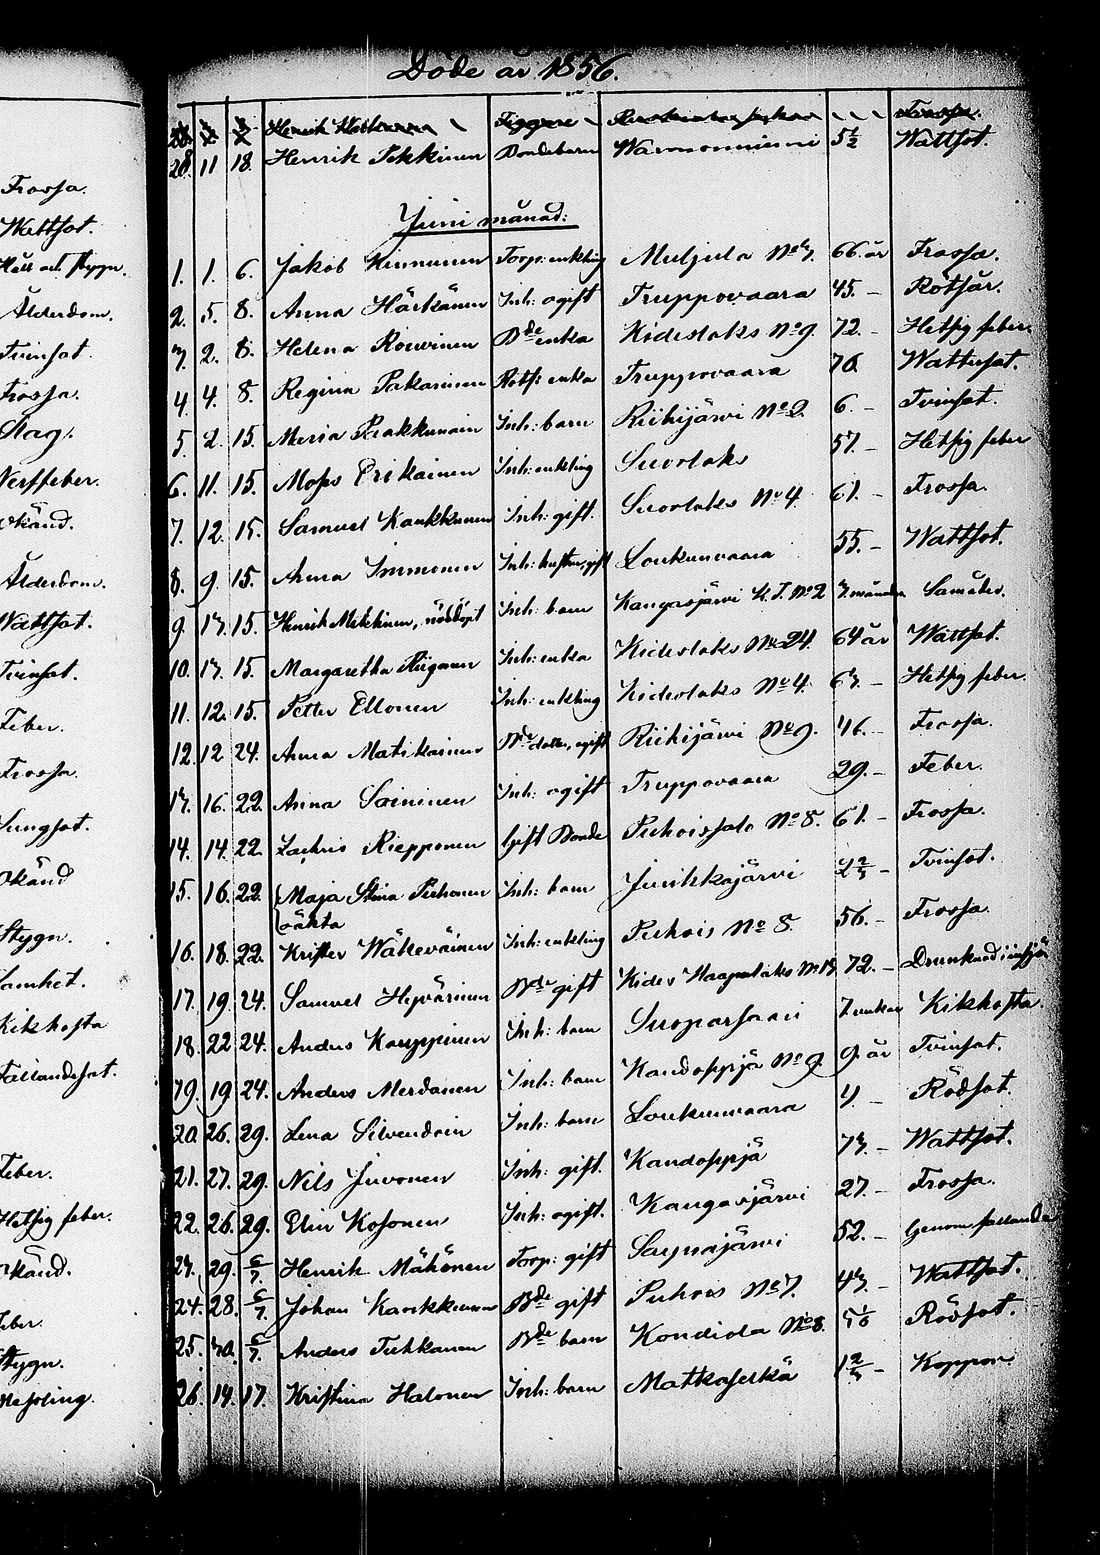 Frossa.
Wattsot.
Håll och Stygn.
Ålderdom.
Tvinsot.
Frossa.
Slag.
Nerffeber.
Okänd.
Ålderdom.
Wattsot.
Tvinsot.
Feber.
Frossa.
Lungsot.
Okänd
Stygn.
Kikhosta
Fallandesot.
Feber.
Hetsig feber.
Okänd.
Feber.
Stygn.
Döde år 1856.
28. Henrik Tiggare Frossa.
28. 11 18. Henrik Pekkinen Bondebarn Warmonniemi 5½ Wattsot.
Juni månad:
1. 1. 6. Jakob Kinnunen Torp: enkling Muljula No 3. 66 år Frossa.
2. 5. 8. Anna Härkänen Inh: ogift Truppovaara 45. – Rötsår.
3. 2. 8. Helena Rouvinen Bde enka Kideslaks No 9. 72. – Hetsig feber.
4. 4. 8. Regina Pakarinen Rotf: enka Truppovaara 70. Wattusot.
5. 2. 15. Maria Rakkunain Inh: barn Riihijärvi No 2. 6. – Tvinsot.
6. 11. 15. Moses Erikainen Inh: enkling Suorlaks 57. – Hetsig feber
7. 12. 15. Samuel Kaukkunen Inh: gift. Suorlaks No 4. 61. – Frossa.
8. 9. 15. Anna Immonen Inh: hustru, gift Loukunvaara 55. – Wattsot.
9. 13. 15. Henrik Mikkinen, nöddöpt Inh: barn Kangasjärvi K. J. No 2 3. månader Samåter.
10. 13. 15. Margaretha Riigonen Inh: enka Kideslaks No 24. 64 år Wattsot.
11. 12. 15. Petter Ellonen Inh: enkling Kideslaks No 4. 63. – Hetsig feber.
12. 12 24. Anna Matikainen Bde dotter, ogift Riihijärvi No 9. 46. – Frossa.
13. 16. 22. Anna Soininen Inh: ogift Truppovaara 29. – Feber.
14. 14. 22. Zachris Riepponen Gift Bonde Puhoissalo No 8. 61. – Frossa.
15. 16. 22. Maja Stina Pirhonen Inh: barn Junihkajärvi 2⅔ – Tvinsot.
oäkta
16. 18. 22. Krister Wäkeväinen Inh: enkling Puhois No 8. 56. – Frossa.
17. 19. 24. Samuel Hyvärinen Bde gift Kides Haapalaks No 13. 72. – Drunknad i insjö
18. 22 24. Anders Kauppinen Inh: barn Suoparsaari 7 veckor Kikhosta.
19. 19 24. Anders Merdanen Inh: barn Kandoppjä No 9. 9. år Tvinsot.
20. 26. 29. Lena Silvendoin Inh: barn Loukunvaara 4 – Rödsot.
21. 27. 29. Nils Juvonen Inh: gift. Kandoppjä 73. – Wattsot.
22. 26. 29. Elin Kosonen Inh: ogift. Kangasjärvi 27. – Frossa.
23. 29. 6/7. Henrik Mähönen Torp: gift Saynäjärvi 52. – Genom fallande
24. 28. 6/7. Johan Kaukkunen Bde gift Puhois No 7. 43. – Wattsot.
25. 30. 6/7. Anders Tuhkanen Bde barn Kondiola No 8. 5 1/6 Rödsot.
26. 14. 17. Kristina Halonen Inh: barn Matkaselkä 1⅔ – Koppor.